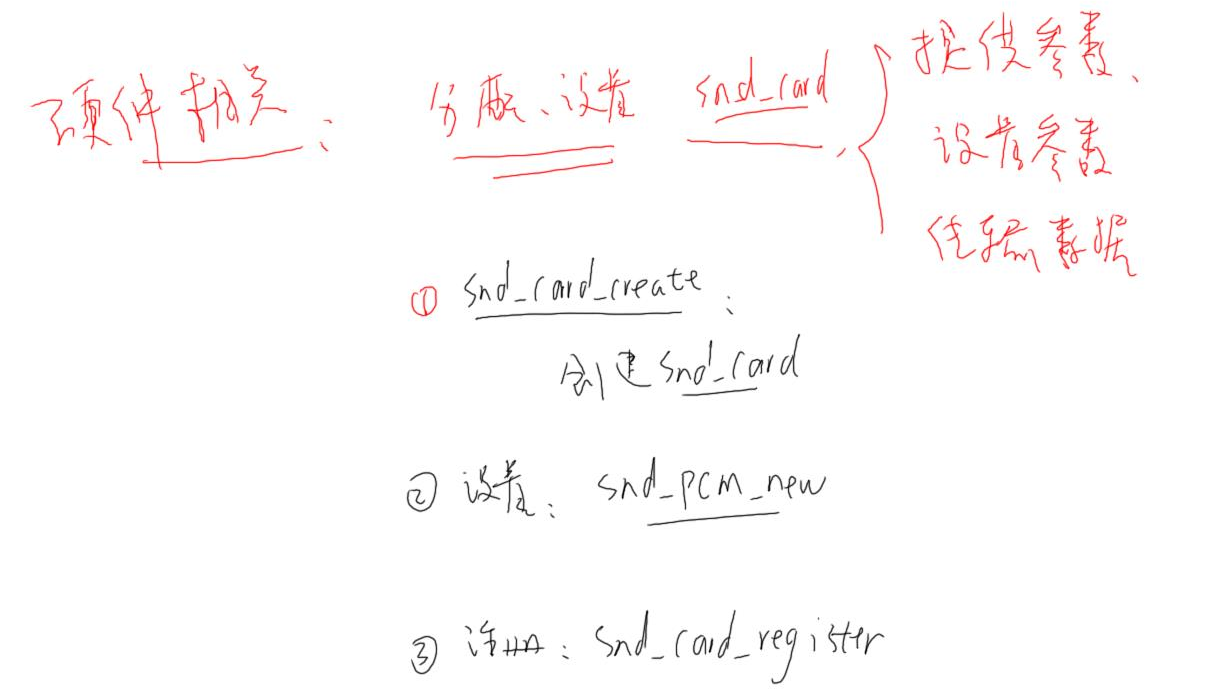 硬件相关: 分配、设置 snd_card,
提供参数、
设置参数
传输数据
① snd_card_create:
创建snd_card
② 设置: snd_pcm_new
③ 注册: snd_card_register